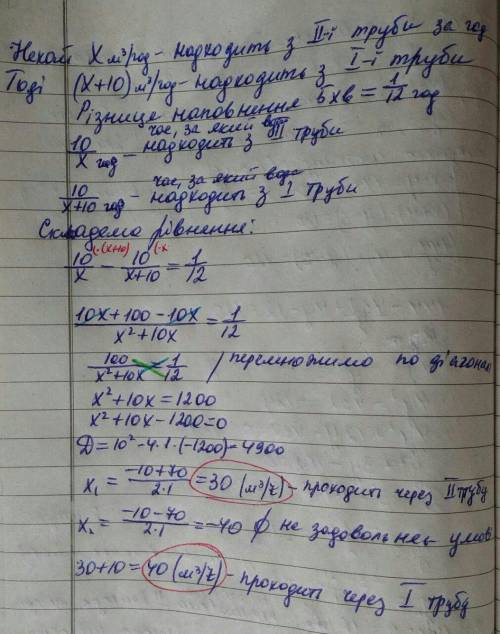 Нехай x м³/год - надходить з II-ї труби за год
Тоді (x+10) м³/год - надходить з I-ї труби
Різниця наповнення 5хв = 1/12 год
час, за який вода
10/x год - надходить з II труби
час, за який вода
10/x+10 год - надходить з I труби
Складемо рівнення:
10/x (·(x+10) - 10/x+10 (·x = 1/12
10x+100-10x/x²+10x = 1/12
100/x²+10x = 1/12 / перемножимо по діагонал
x²+10x=1200
x²+10x-1200=0
D=10²-4·1·(-1200)=4900
x₁ = -10+70/2·1 = 30 (м³/г) - проходить через II трубу
x₂ = -10-70/2·1 = -40 ∮ не задовольняє умов
30+10=40 (м³/г) - проходить через I трубу